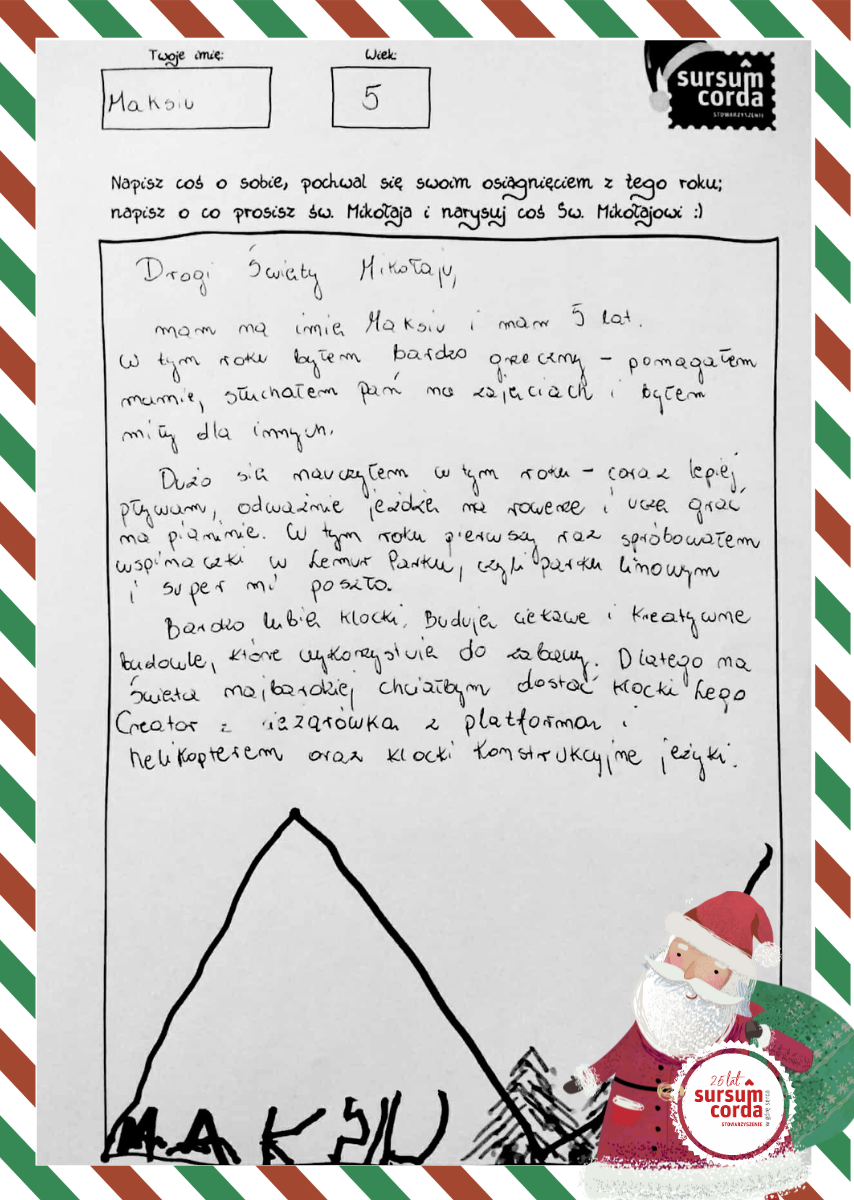 Twoje imię: Wiek:
Maksiu 5
sursum
corda
STOWARZYSZENIE
Napisz coś o sobie, pochwal się swoim osiągnięciem z tego roku;
napisz o co prosisz św. Mikołaja i narysuj coś Św. Mikołajowi :)
Drogi Święty Mikołaju,
mam na imię Maksiu i mam 5 lat.
W tym roku byłem bardzo grzeczny - pomagałem
mamie, słuchałem pań na zajęciach i byłem
miły dla innych.
Dużo się nauczyłem w tym roku - coraz lepiej
pływam, odważnie jeżdżę na rowerze i uczę grać
na pianinie. W tym roku pierwszy raz spróbowałem
wspinaczki w Lemur Parku, czyli parku linowym
i super mi poszło.
Bardzo lubię klocki. Buduję ciekawe i kreatywne
budowle, które wykorzystuję do zabawy. Dlatego na
święta najbardziej chciałbym dostać klocki Lego
Creator z ciężarówką z platformą i
helikopterem oraz klocki konstrukcyjne jeżyki.
MAKSIU
25 lat
sursum
corda
STOWARZYSZENIE
w górę serca